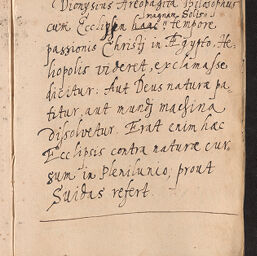 Dionysius Areopagita Philosophus
magnam Solis
cum Eclipsin haac tempore
passionis Christi in Ægypto. He-
liopolis videret, exclamasse
dicitur: Aut Deus naturæ pa-
titur, aut mundi machina
dissolvetur. Erat enim hac
Ecclipsis contra naturæ cur-
sum in Plenilunio; prout
Suidas refert.